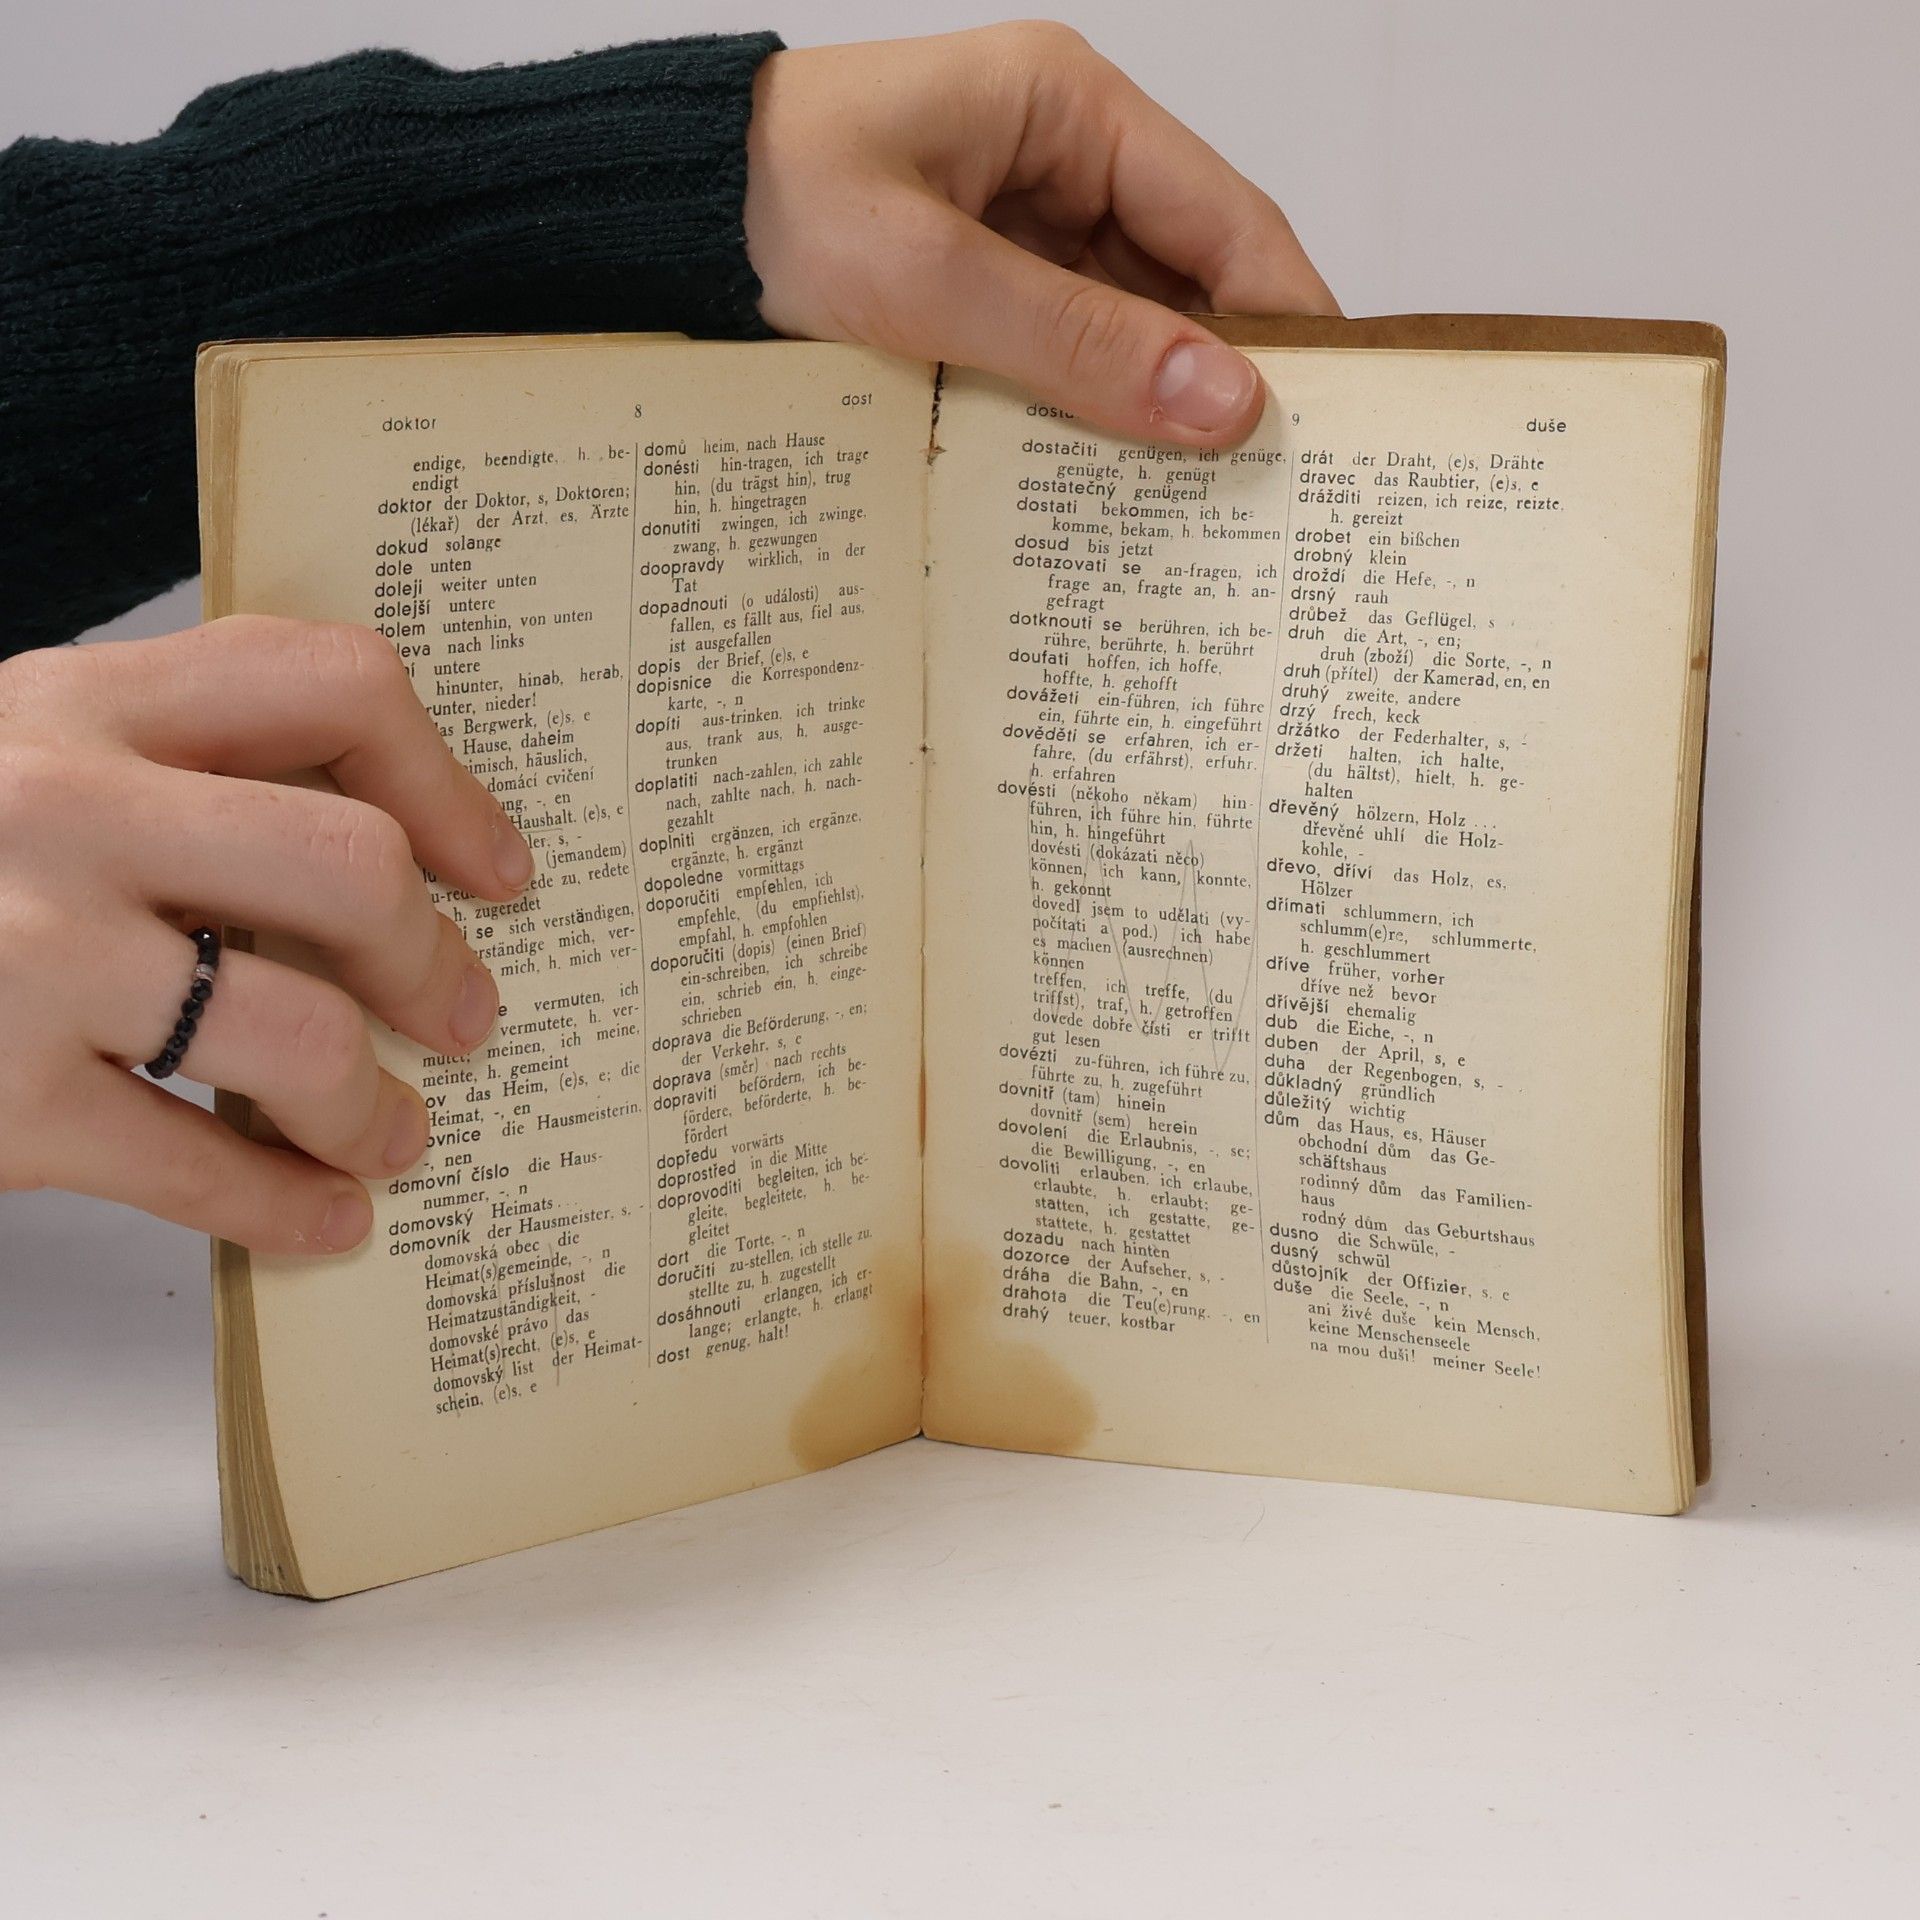 doktor 8 dost
endige, beendigte, h. be-
endigt
doktor der Doktor, s, Doktoren;
(lékař) der Arzt, es, Ärzte
dokud solange
dole unten
doleji weiter unten
dolejší untere
dolem untenhin, von unten
leva nach links
ní untere
hinunter, hinab, herab,
runter, nieder!
as Bergwerk, (e)s, e
Hause, daheim
imisch, häuslich,
domácí cvičení
ung, -, en
Haushalt, (e)s, e
ler, s, -
(jemandem)
u-rede zu, redete
h. zugeredet
i se sich verständigen,
rständige mich, ver-
mich, h. mich ver-
e vermuten, ich
vermutete, h. ver-
mutet; meinen, ich meine,
meinte, h. gemeint
ov das Heim, (e)s, e; die
Heimat, -, en
ovnice die Hausmeisterin,
-, nen
domovní číslo die Haus-
nummer, -, n
domovský Heimats...
domovník der Hausmeister, s, -
domovská obec die
Heimat(s)gemeinde, -, n
domovská příslušnost die
Heimatzuständigkeit, -
domovské právo das
Heimat(s)recht, (e)s, e
domovský list der Heimat-
schein, (e)s, e
domů heim, nach Hause
donésti hin-tragen, ich trage
hin, (du trägst hin), trug
hin, h. hingetragen
donutiti zwingen, ich zwinge,
zwang, h. gezwungen
doopravdy wirklich, in der
Tat
dopadnouti (o události) aus-
fallen, es fällt aus, fiel aus,
ist ausgefallen
dopis der Brief, (e)s, e
dopisnice die Korrespondenz-
karte, -, n
dopíti aus-trinken, ich trinke
aus, trank aus, h. ausge-
trunken
doplatiti nach-zahlen, ich zahle
nach, zahlte nach, h. nach-
gezahlt
doplniti ergänzen, ich ergänze,
ergänzte, h. ergänzt
dopoledne vormittags
doporučiti empfehlen, ich
empfehle, (du empfiehlst),
empfahl, h. empfohlen
doporučiti (dopis) (einen Brief)
ein-schreiben, ich schreibe
ein, schrieb ein, h. einge-
schrieben
doprava die Beförderung, -, en;
der Verkehr, s, e
doprava (směr) nach rechts
dopraviti befördern, ich be-
fördere, beförderte, h. be-
fördert
dopředu vorwärts
doprostřed in die Mitte
doprovoditi begleiten, ich be-
gleite, begleitete, h. be-
gleitet
dort die Torte, -, n
doručiti zu-stellen, ich stelle zu,
stellte zu, h. zugestellt
dosáhnouti erlangen, ich er-
lange; erlangte, h. erlangt
dost genug, halt!
9 duše
dostačiti genügen, ich genüge,
genügte, h. genügt
dostatečný genügend
dostati bekommen, ich be-
komme, bekam, h. bekommen
dosud bis jetzt
dotazovati se an-fragen, ich
frage an, fragte an, h. an-
gefragt
dotknouti se berühren, ich be-
rühre, berührte, h. berührt
doufati hoffen, ich hoffe,
hoffte, h. gehofft
dovážeti ein-führen, ich führe
ein, führte ein, h. eingeführt
dověděti se erfahren, ich er-
fahre, (du erfährst), erfuhr,
h. erfahren
dovésti (někoho někam) hin-
führen, ich führe hin, führte
hin, h. hingeführt
dovésti (dokázati něco)
können, ich kann, konnte,
h. gekonnt
dovedl jsem to udělati (vy-
počítati a pod.) ich habe
es machen (ausrechnen)
können
treffen, ich treffe, (du
triffst), traf, h. getroffen
dovede dobře čísti er trifft
gut lesen
dovézti zu-führen, ich führe zu,
führte zu, h. zugeführt
dovnitř (tam) hinein
dovnitř (sem) herein
dovolení die Erlaubnis, -, se;
die Bewilligung, -, en
dovoliti erlauben, ich erlaube,
erlaubte, h. erlaubt; ge-
statten, ich gestatte, ge-
stattete, h. gestattet
dozadu nach hinten
dozorce der Aufseher, s, -
dráha die Bahn, -, en
drahota die Teu(e)rung, -, en
drahý teuer, kostbar
drát der Draht, (e)s, Drähte
dravec das Raubtier, (e)s, e
drážditi reizen, ich reize, reizte,
h. gereizt
drobet ein bißchen
drobný klein
droždí die Hefe, -, n
drsný rauh
drůbež das Geflügel, s
druh die Art, -, en;
druh (zboží) die Sorte, -, n
druh (přítel) der Kamerad, en, en
druhý zweite, andere
drzý frech, keck
držátko der Federhalter, s, -
držeti halten, ich halte,
(du hältst), hielt, h. ge-
halten
dřevěný hölzern, Holz ...
dřevěné uhlí die Holz-
kohle, -
dřevo, dříví das Holz, es,
Hölzer
dřímati schlummern, ich
schlumm(e)re, schlummerte,
h. geschlummert
dříve früher, vorher
dříve než bevor
dřívější ehemalig
dub die Eiche, -, n
duben der April, s, e
duha der Regenbogen, s, -
důkladný gründlich
důležitý wichtig
dům das Haus, es, Häuser
obchodní dům das Ge-
schäftshaus
rodinný dům das Familien-
haus
rodný dům das Geburtshaus
dusno die Schwüle, -
dusný schwül
důstojník der Offizier, s, e
duše die Seele, -, n
ani živé duše kein Mensch,
keine Menschenseele
na mou duši! meiner Seele!